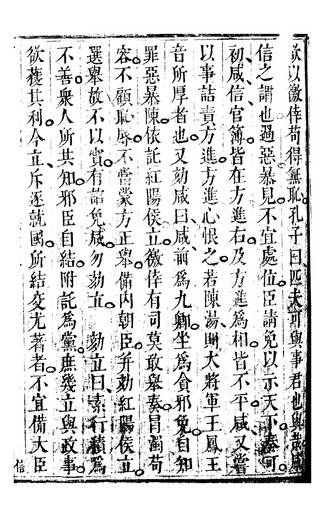 欲以徼倖苟得無恥孔子曰匹夫可與事君也與哉咸
信之謂也過惡暴見不宜處位臣請免以示天下奏可
初咸信官簿皆在方進右及方進爲相皆不平咸又嘗
以事詰責方進方進心恨之若陳湯附大將軍王鳳王
音所厚者也又劾咸曰咸前爲九卿坐爲貪邪免自知
罪惡暴陳依託紅陽侯立徼倖有司莫敢舉奏冒濁苟
容不顧恥辱不當蒙方正舉備內朝臣幷劾紅陽侯立
選舉故不以實有詔免咸勿劾立 劾立曰素行積爲
不善衆人所共知邪臣自結附託爲黨庶幾立與政事
欲獲其利今立斥逐就國所結交尤著者不宜備大臣
信